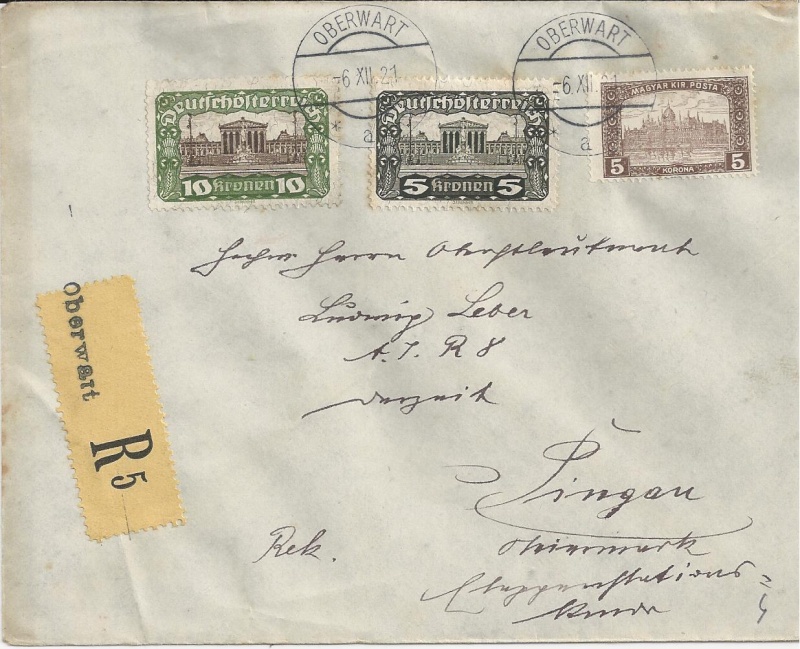 OBERWART
-6.XII.21
* a
OBERWART
-6.XII.21
* a
Deutschösterreich
10 Kronen 10
Deutschösterreich
5 Kronen 5
MAGYAR KIR. POSTA
5 KORONA 5
Herrn Oberstleutnant
Ludwig Leber
A. I. R 8
derzeit
Pingau
Steiermark
Etappenstations-
Kmdo
Rek.
Oberwart
R 5